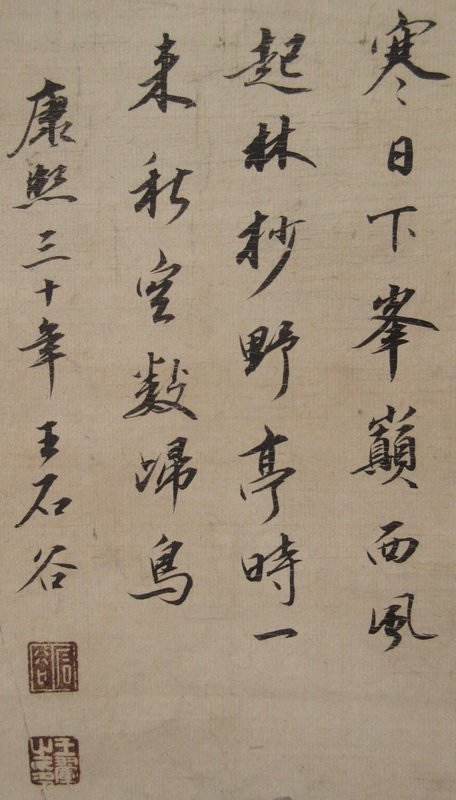 寒日下峯巔西風
起林杪野亭時一
来秋空数歸鳥
康熙三十年王石谷
石谷
王翬之印